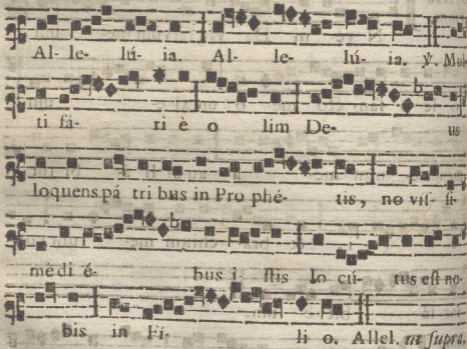 Al- le- lú- ia. Al- le- lú- ia. ℣. Mul-
ti fá- ri è o lim De- us
loquens pá tri bus in Pro phé- tis, no vis- si-
mè di é- bus i- stis lo cú- tus est no-
bis in Fí- li o. Allel. ut supra.